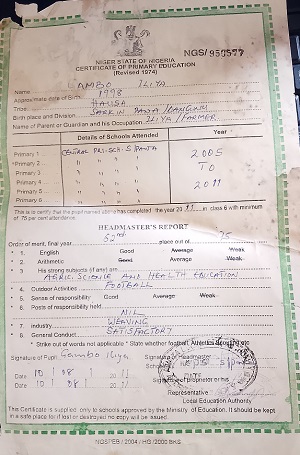 NIGER STATE OF NIGERIA
NGS/950577
CERTIFICATE OF PRIMARY EDUCATION
(Revised 1974)
Name GAMBO ILIYA
Approximate date of Birth 1998
Tribe HAUSA
Birth place and Division SARKIN PAWA
Name of Parent or Guardian and his Occupation ILIYA / FARMER
Details of Schools Attended Year
Primary 1 CENTRAL PRI. SCH. S/PAWA 2005
Primary 2 " " "
Primary 3 " " " TO
Primary 4 " " "
Primary 5 " " " 2011
Primary 6 " " "
This is to certify that the pupil named above has completed the year 2011 in class 6 with minimum
of 75 per cent attendance.
HEADMASTER'S REPORT
Order of merit, final year 52nd place out of 75
* 1. English Good Average Weak
* 2. Arithmetic Good Average Weak
3. His strong subjects (if any) are
AGRIC. SCIENCE AND HEALTH EDUCATION
4. Outdoor Activities FOOTBALL
* 5. Sense of responsibility Good Average Weak
6. Posts of responsibility held
NIL
7. Industry WEAVING
8. General Conduct SATISFACTORY
* Strike out words not applicable * State whether football, Athletics, Scouting etc
Signature of Pupil Gambo iliya Signature of Headmaster
Date 10 08 2011
Date 10 08 2011 Signature of proprietor or his
Representative
Local Education Authority
This Certificate is supplied only to schools approved by the Ministry of Education. It should be kept
in a safe place for if lost or destroyed no copy will be issued.
NGSPEB / 2004 / HG /2000 BKS.